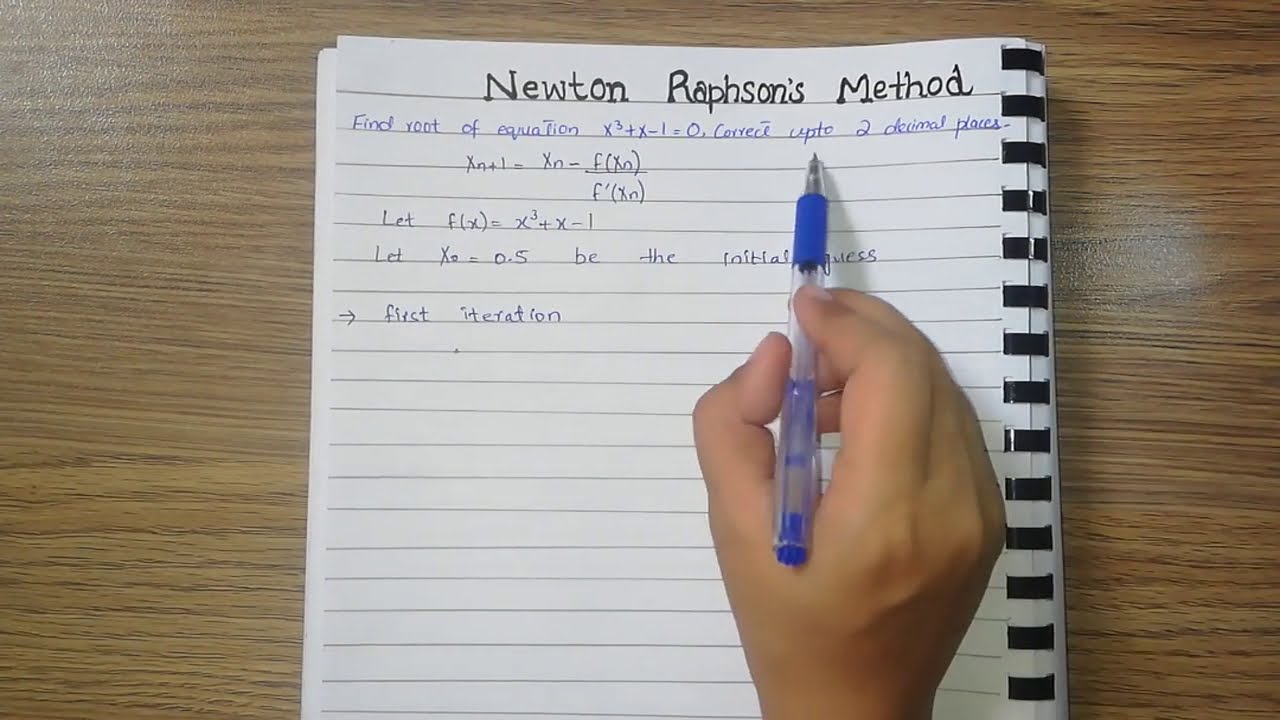 Newton Raphson's Method
Find root of equation x³+x-1=0, correct upto 2 decimal places.
xn+1 = xn - f(xn)
f'(xn)
Let f(x) = x³+x-1
Let x₀ = 0.5 be the initial guess
→ first iteration